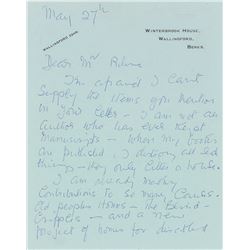 May 27th
WINTERBROOK HOUSE,
WALLINGFORD,
BERKS.
WALLINGFORD
Dear Mr
I'm afraid I can't
supply the items you mention
in your letter – I am not an
author who has ever kept
Manuscripts – When my books
are published, I destroy all
things – they only litter a house.
I am already making
contributions to so many Causes
Old peoples Homes – The Blind –
Cripples – and a new
project of homes for disabled